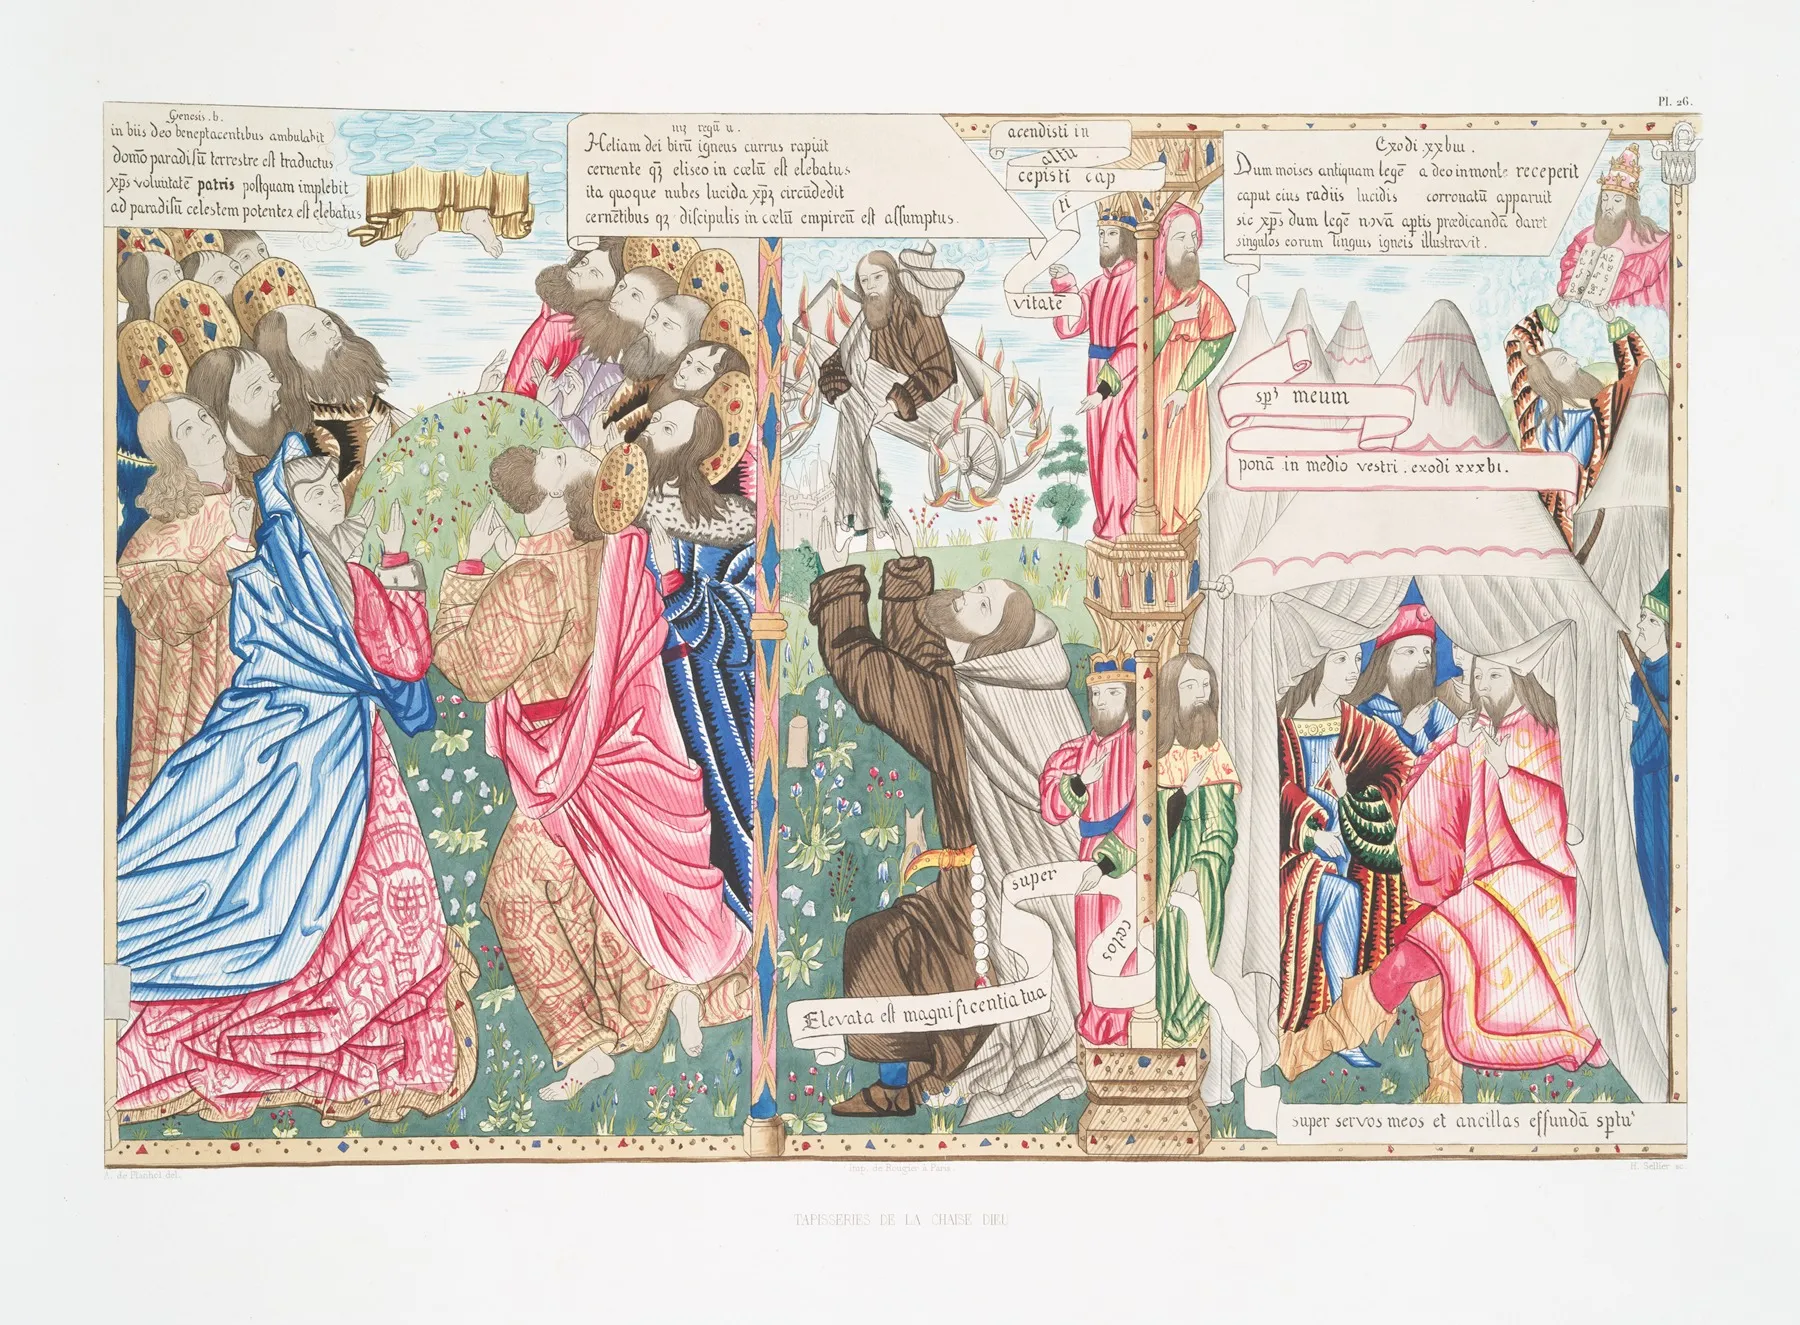 Pl. 26.
Genesis. b.
in biis deo beneptacentibus ambulabit
domō paradisū terrestre est traductus
xp̄s voluntatē patris postquam implebit
ad paradisū celestem potentez est elebatus
iiij regū ii.
Heliam dei birū igneus currus rapuit
cernente qȝ eliseo in cœlū est elebatus
ita quoque nubes lucida xp̄ȝ circūdedit
cernētibus qȝ discipulis in cœlū empireū est assumptus.
acendisti in
altū
cepisti cap
ti
vitatē
Exodi xxbiii.
Dum moises antiquam legē a deo in monte receperit
caput eius radiis lucidis corronatū apparuit
sic xp̄s dum legē novā aptis prædicandā daret
singulos eorum linguis igneis illustravit.
sp̄ꝰ meum
ponā in medio vestri. exodi xxxbi.
super
cœlos
Elevata est magnificentia tua
super servos meos et ancillas effundā sp̄tū
A. de Planhol del.
Imp. de Rougier à Paris.
H. Sellier sc.
TAPISSERIES DE LA CHAISE DIEU